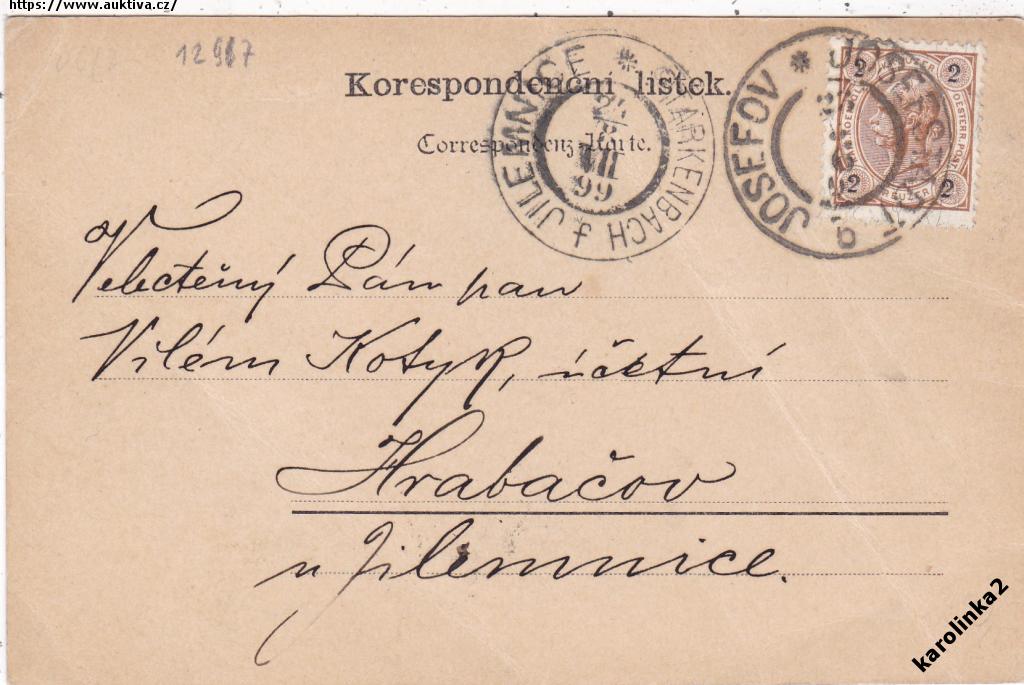 https://www.auktiva.cz/
12967
Korespondenční lístek.
Correspondenz-Karte.
JILEMNICE * STARKENBACH
VII
99
JOSEFOV * JOSEFSTADT
b
2 2
OESTERR. POST
KREUZER
2 2
Velectěný Pán pan
Vilém Kotyk, účetní
Hrabačov
u Jilemnice.
karolinka2